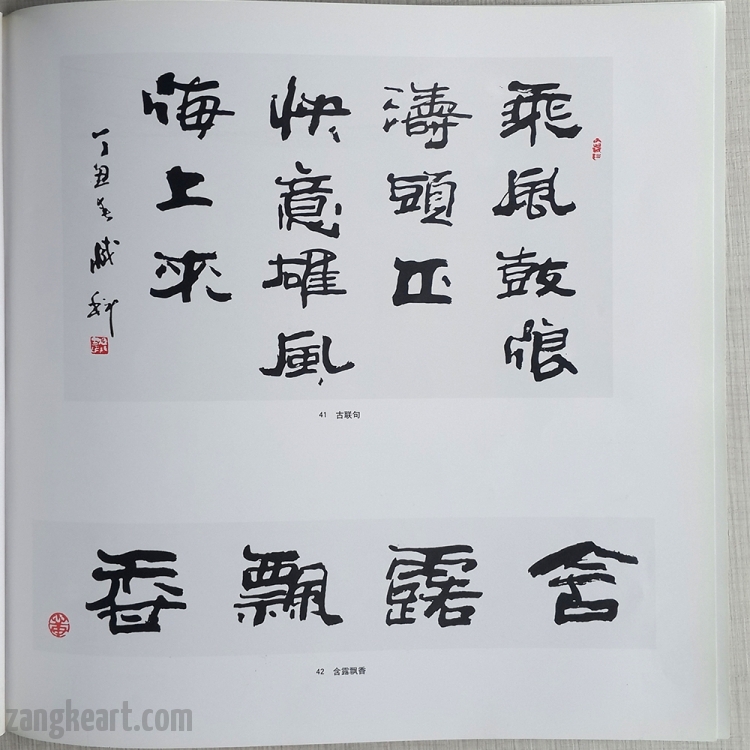 乘風鼓浪
濤頭立
快意雄風
海上來
丁丑春臧科
41 古联句
含露飄香
42 含露飘香
zangkeart.com